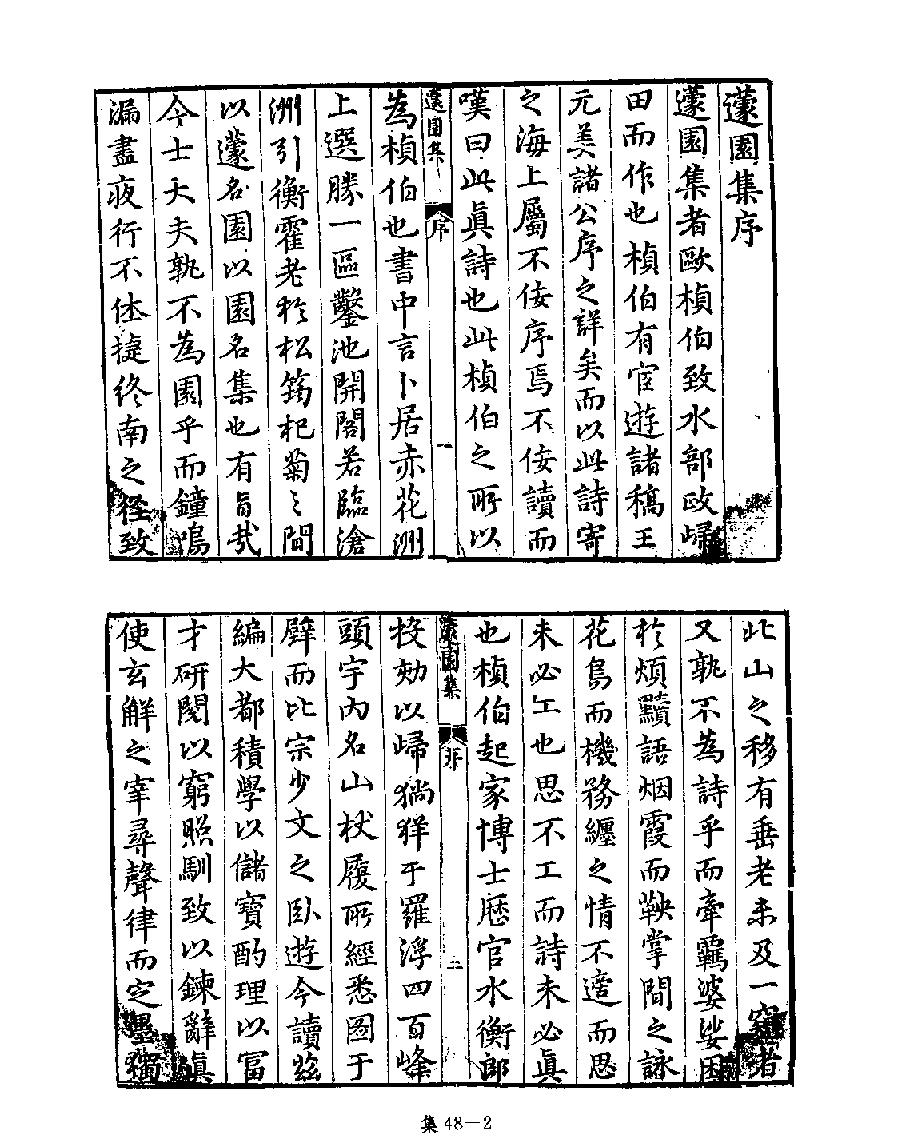 蘧園集序
蘧園集者歐楨伯致水部政歸
田而作也楨伯有宦遊諸稿王
元美諸公序之詳矣而以此詩寄
之海上屬不佞序焉不佞讀而
嘆曰此眞詩也此楨伯之所以
蘧園集 序 一
為楨伯也書中言卜居赤花洲
上選勝一區鑿池開閣若臨滄
洲引衡霍老於松筠杞菊之間
以蘧名園以園名集也有旨哉
今士大夫孰不為園乎而鐘鳴
漏盡夜行不休捷終南之徑致
北山之移有垂老未及一窺者
又孰不為詩乎而牽羈婆娑困
於煩黷語烟霞而鞅掌間之詠
花鳥而機務纏之情不適而思
未必工也思不工而詩未必眞
也楨伯起家博士歷官水衡郎
蘧園集 序 二
投劾以歸徜徉于羅浮四百峰
頭宇內名山杖履所經悉圖于
壁而比宗少文之臥遊今讀茲
編大都積學以儲寶酌理以富
才研閱以窮照馴致以鍊辭眞
使玄解之宰尋聲律而定墨獨
集 48—2